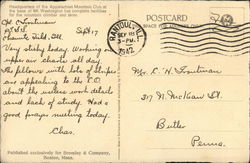 Headquarters of the Appalachian Mountain Club at
the base of Mt. Washington has complete facilities
for the mountain climber and skier.
POSTCARD
Pvt. C. Troutman
Sept 17
Chanute Field, Ill.
RANTOUL, ILL.
SEP 18
3-PM
1942
Very sticky today. Working on
upper air charts all day.
The fellows with lots of stripes
are appealing to the T.C.
about the writers work details
and lack of study. Had a
good prayer meeting today.
Chas.
Mrs. C. H. Troutman
317 N. McKean St.
Butler
Penna.
Published exclusively for Bromley & Company,
Boston, Mass.